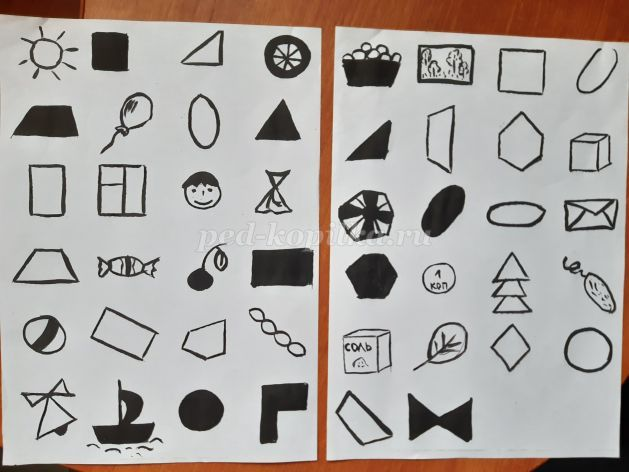 ped-kopilka.ru
1
КОП
СОЛЬ